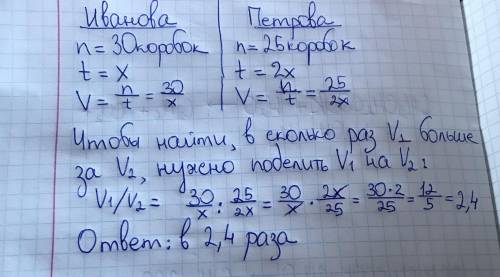 Иванова
n = 30 коробок
t = x
V = n/t = 30/x
Петрова
n = 25 коробок
t = 2x
V = n/t = 25/2x
Чтобы найти, в сколько раз V1 больше
за V2, нужно поделить V1 на V2:
V1/V2 = 30/x : 25/2x = 30/x · 2x/25 = 30·2/25 = 12/5 = 2,4
Ответ: в 2,4 раза